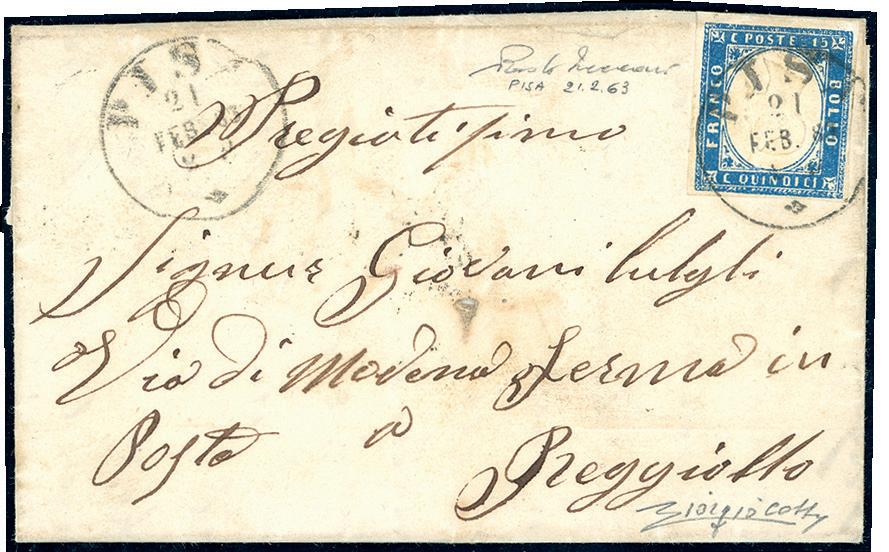 PIS
21
FEB. 63
PISA 21.2.63
C POSTE 15
FRANCO
BOLLO
C QUINDICI
PIS
21
FEB. 6
Pregiatissimo
Signur Giovani
Via di Modena ferma in
Posta a Reggiollo
Giorgio Colla